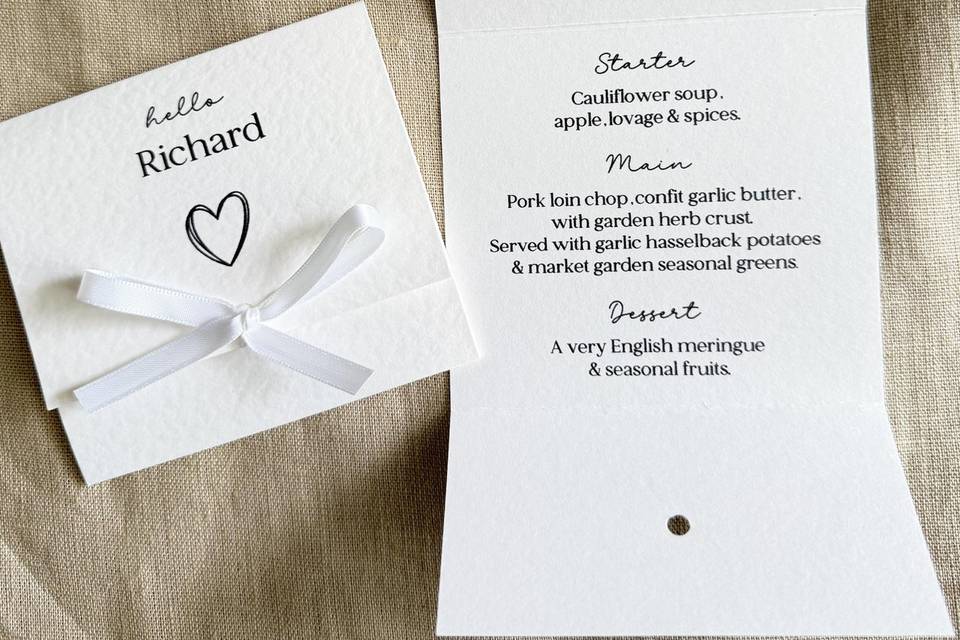 hello
Richard
Starter
Cauliflower soup,
apple, lovage & spices.
Main
Pork loin chop, confit garlic butter,
with garden herb crust.
Served with garlic hasselback potatoes
& market garden seasonal greens.
Dessert
A very English meringue
& seasonal fruits.